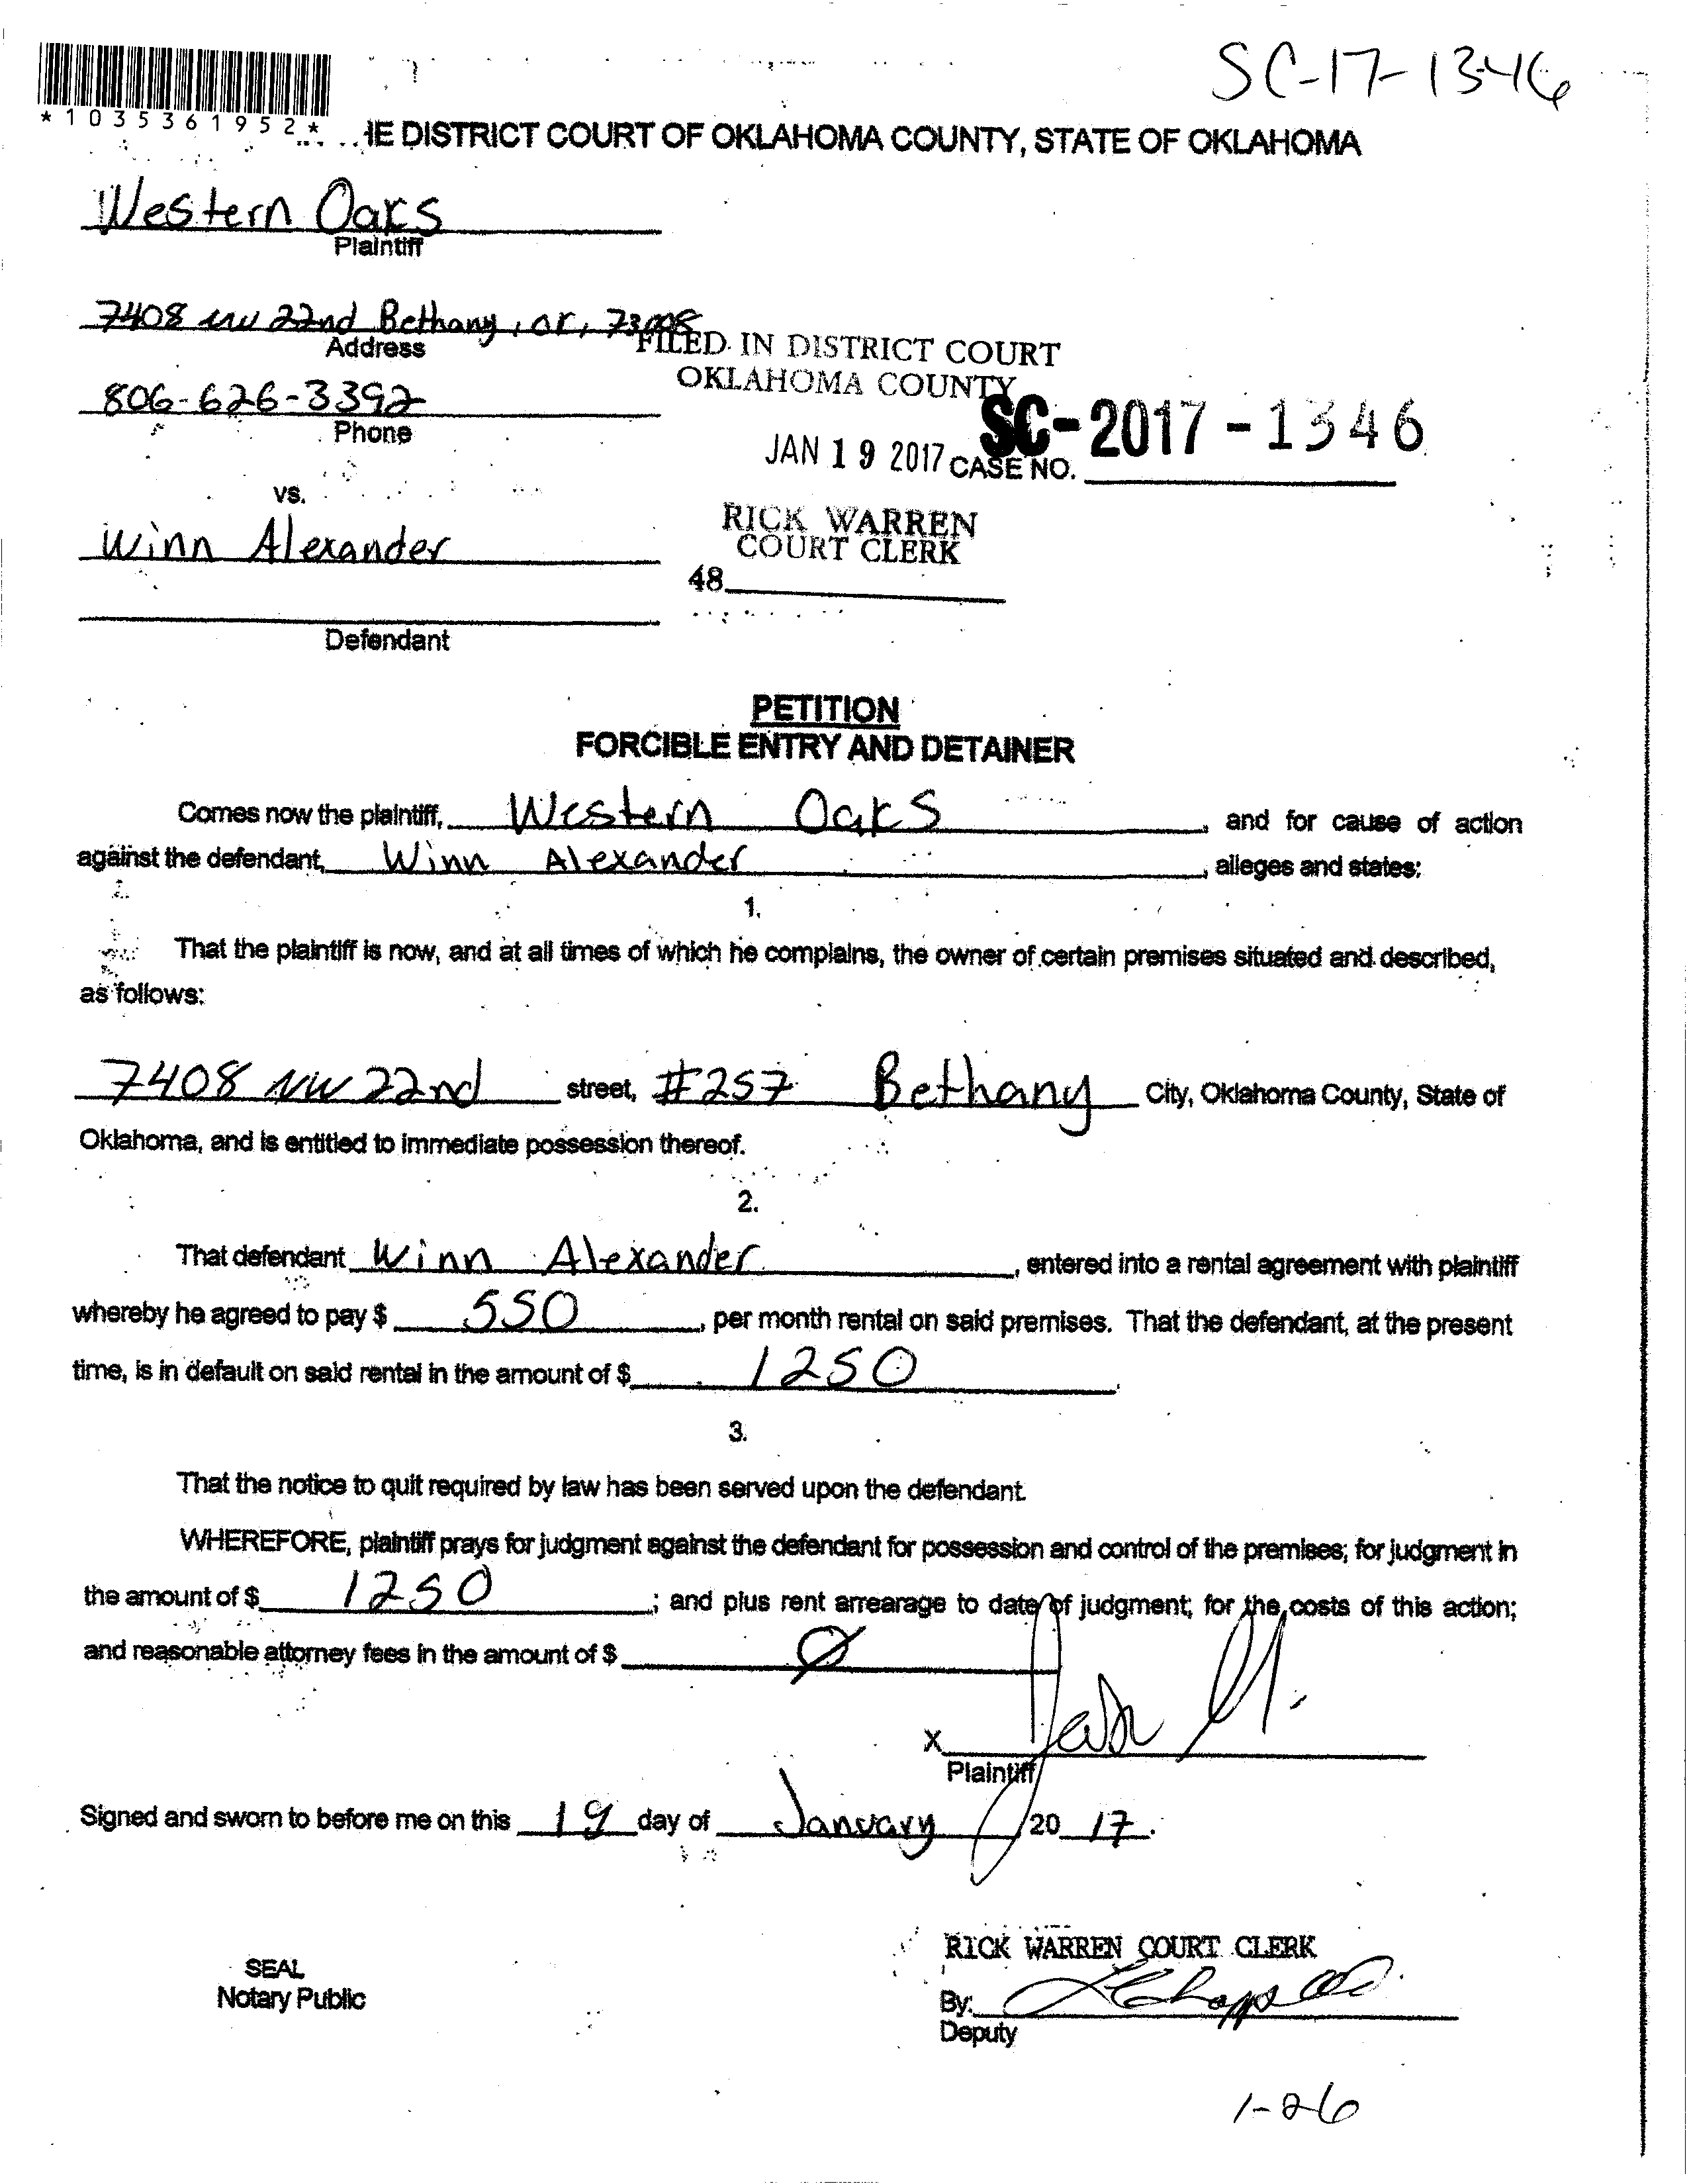 SC-17-1346
*1035361952*
IE DISTRICT COURT OF OKLAHOMA COUNTY, STATE OF OKLAHOMA
Western Oaks
Plaintiff
7408 NW 22nd Bethany, OK, 73008
Address
FILED IN DISTRICT COURT
OKLAHOMA COUNTY
806-626-3392
Phone
SC-2017-1346
JAN 19 2017 CASE NO.
vs.
RICK WARREN
COURT CLERK
Winn Alexander
48
Defendant
PETITION
FORCIBLE ENTRY AND DETAINER
Comes now the plaintiff, Western Oaks, and for cause of action
against the defendant, Winn Alexander, alleges and states:
1.
That the plaintiff is now, and at all times of which he complains, the owner of certain premises situated and described,
as follows:
7408 NW 22nd street, #257 Bethany City, Oklahoma County, State of
Oklahoma, and is entitled to immediate possession thereof.
2.
That defendant Winn Alexander, entered into a rental agreement with plaintiff
whereby he agreed to pay $ 550, per month rental on said premises. That the defendant, at the present
time, is in default on said rental in the amount of $ 1250.
3.
That the notice to quit required by law has been served upon the defendant.
WHEREFORE, plaintiff prays for judgment against the defendant for possession and control of the premises; for judgment in
the amount of $ 1250; and plus rent arrearage to date of judgment; for the costs of this action;
and reasonable attorney fees in the amount of $ Ø
X
Plaintiff
Signed and sworn to before me on this 19 day of January, 20 17.
RICK WARREN COURT CLERK
SEAL
Notary Public
By:
Deputy
1-26